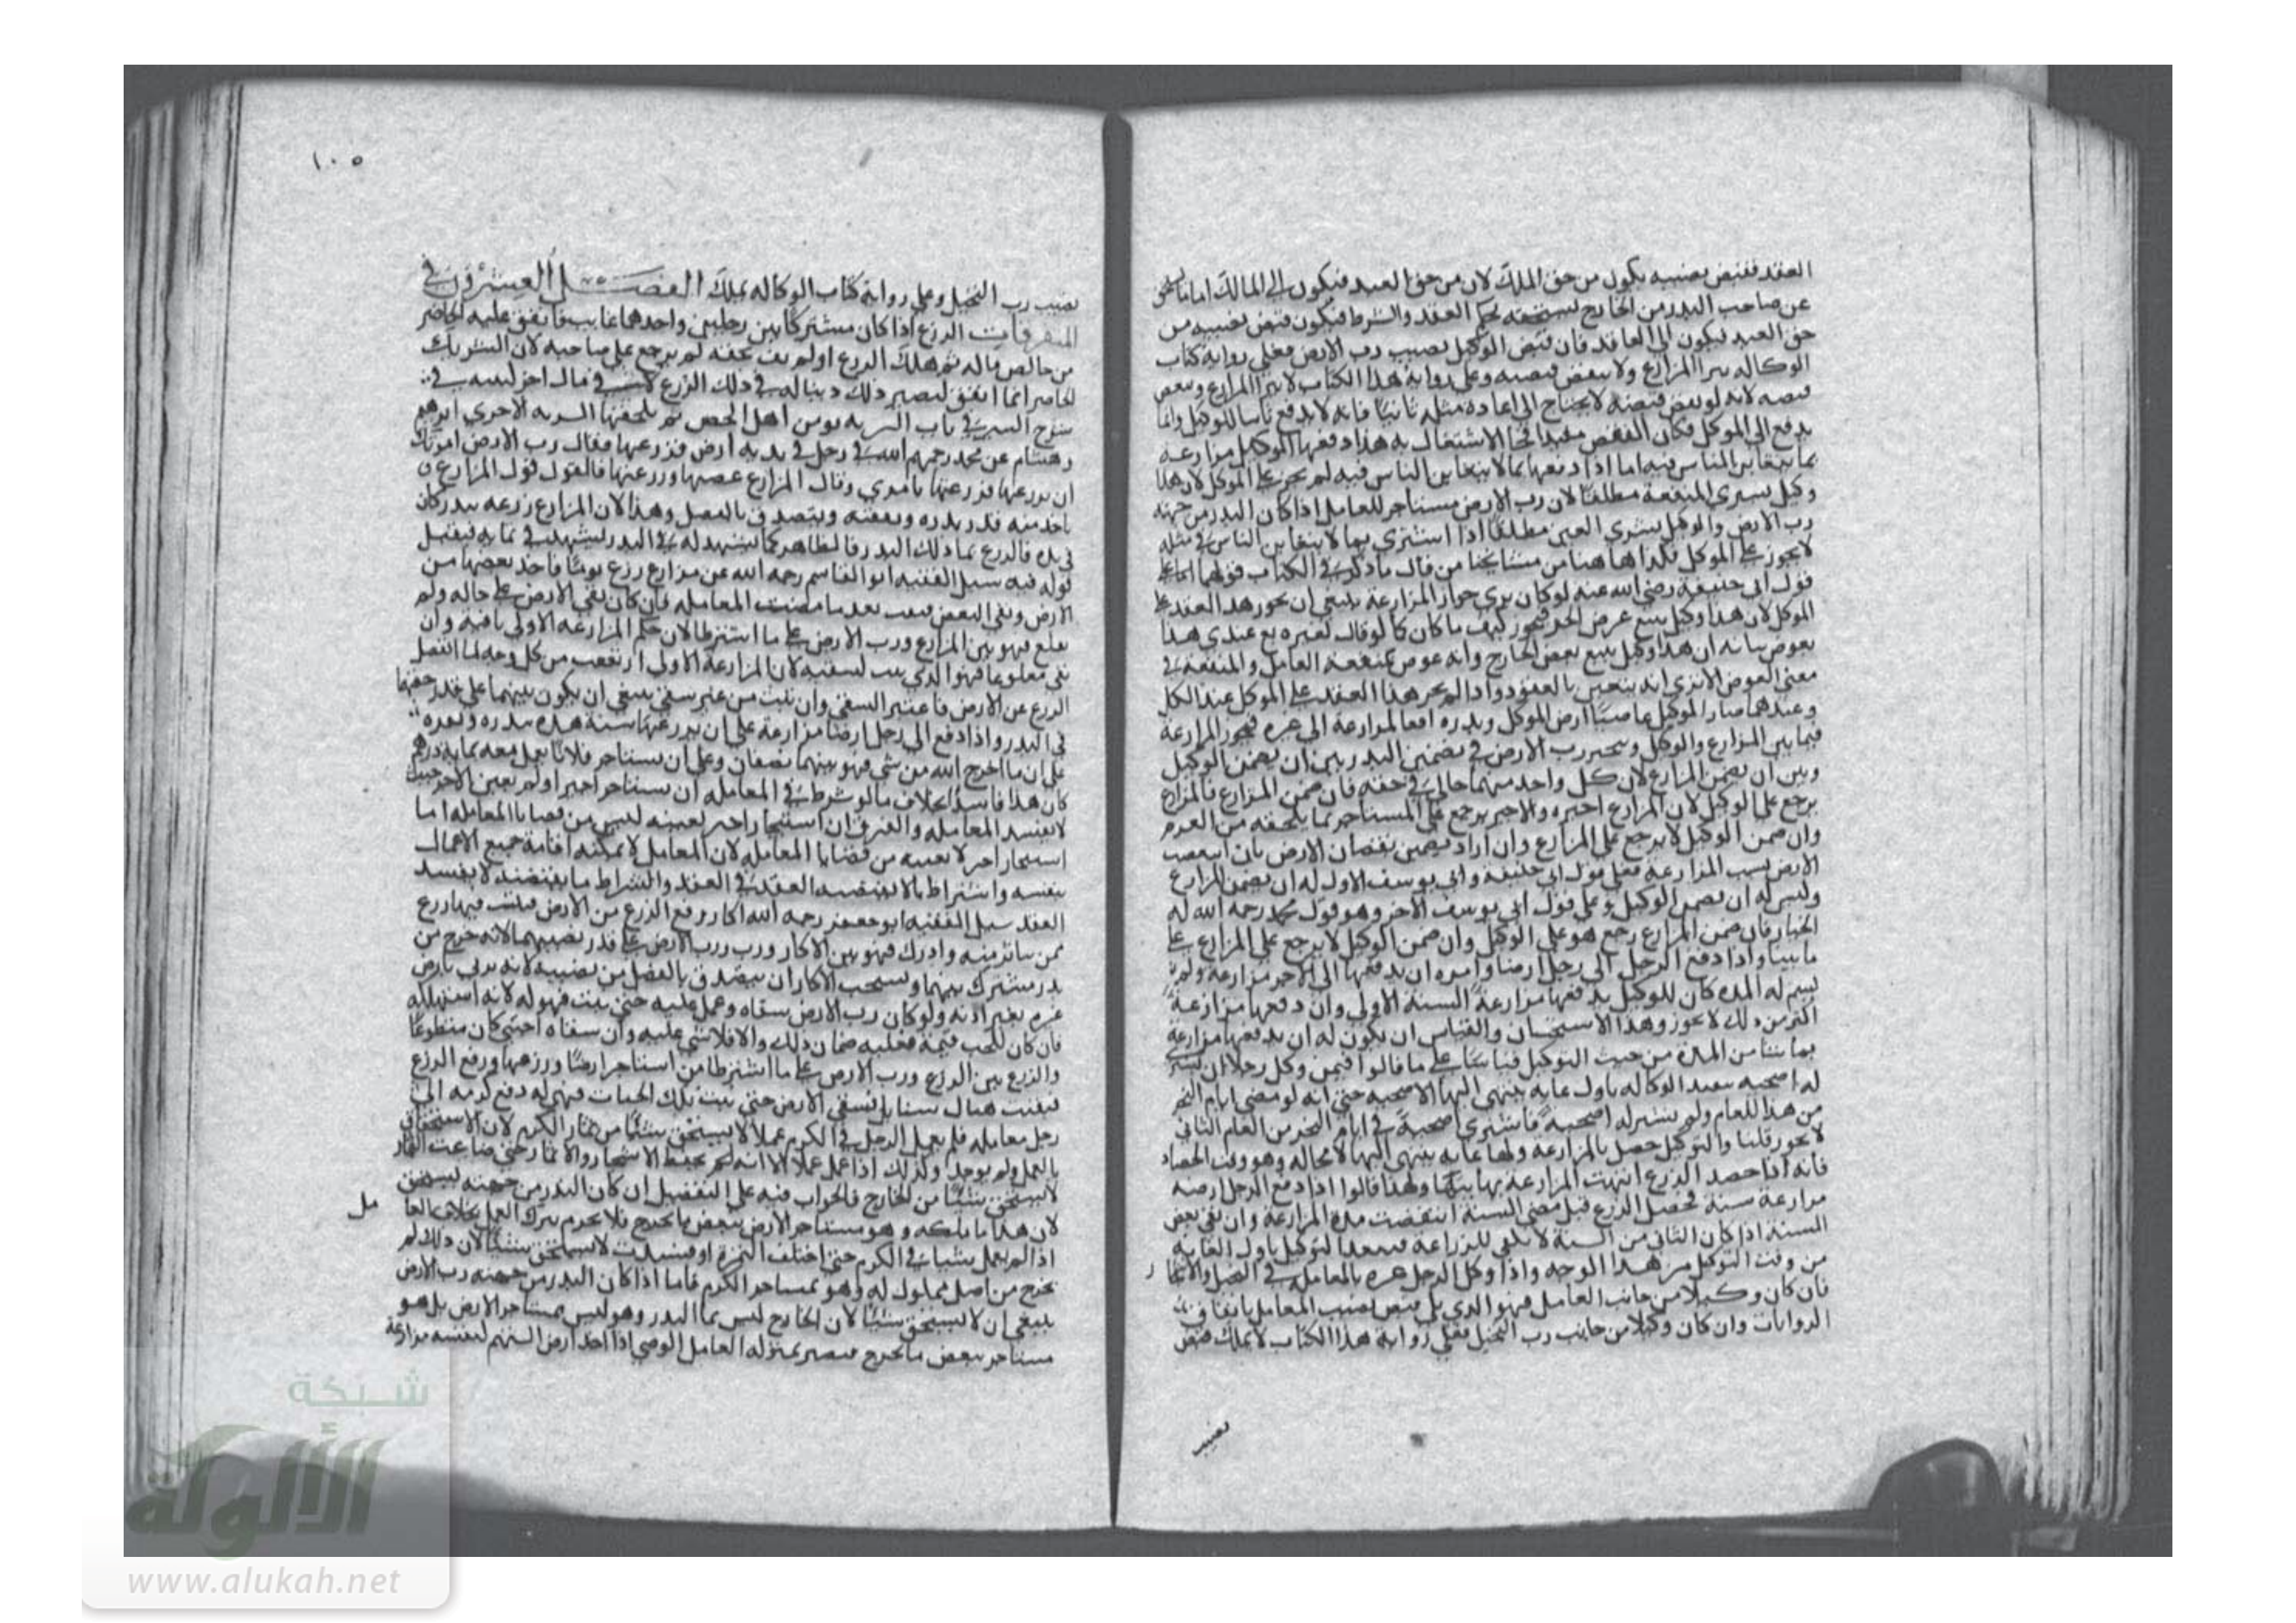 العقد فقبض نصيبه يكون من حق الملك لان من حق العبد فيكون الى المالك اما ما يستحق
عن صاحب البدر من الخارج يستحقه بحكم العقد والشرط فيكون قبض نصيبه من
حق العبد فيكون الى العاقد فان قبض الوكيل نصيب رب الارض فعلى رواية كتاب
الوكاله يبرا المزارع ولا ينقض قبضه وعلى رواية هذا الكتاب لا يبرا المزارع وينقض
قبضه لانه لو نقض قبضه لا يحتاج الى اعادة مثله ثانيا فانه لا يدفع ثانيا للوكيل وانما
يدفع الى الموكل فكان النقض مفيدا فجاز الاشتغال به هذا دفعها الوكيل مزارعة
بما يتغابن الناس فيه اما اذا دفعها بما لا يتغابن الناس فيه لم يجز على الموكل لان هذا
وكيل بشرى المنفعة مطلقا لان رب الارض مستاجر للعامل اذا كان البدر من جهته
رب الارض والوكيل بشرى العين مطلقا اذا اشترى بما لا يتغابن الناس في مثله
لا يجوز على الموكل فكذا هاهنا من مشايخنا من قال ما ذكر في الكتاب قولهما اما على
قول ابي حنيفة رضي الله عنه لو كان يرى جواز المزارعة ينبغي ان يجوز هذا العقد على
الموكل لان هذا وكيل ببيع عرض الخ فيجوز كيف ما كان كما لو قال لغيره بع عبدي هذا
بعوض بيانه ان هذا وكيل ببيع بعض الخارج وانه عوض بمنفعة العامل والمنفعة في
معنى العوض الا ترى انه يتعين بالعقود واذا لم يجز هذا العقد على الموكل عند الكل
وعندهما صار الموكيل غاصبا ارض الموكل وبدره دافعا مزارعة الى غيره فيجوز المزارعة
فيما بين المزارع والوكيل ويخير رب الارض في تضمين البدر بين ان يضمن الوكيل
وبين ان يضمن المزارع لان كل واحد منهما جاني في حقه فان ضمن المزارع فالمزارع
يرجع على الوكيل لان المزارع اجيره والاجير يرجع على المستاجر بما يلحقه من الغرم
وان ضمن الوكيل لا يرجع على المزارع وان اراد تضمين نقصان الارض بان انتقصت
الارض بسبب المزارعة فعلى قول ابي حنيفة وابي يوسف الاول له ان يضمن المزارع
وليس له ان يضمن الوكيل وعلى قول ابي يوسف الاخر وهو قول محمد رحمه الله له
الخيار فان ضمن المزارع رجع هو على الوكيل وان ضمن الوكيل لا يرجع على المزارع على
ما بينا واذا دفع الرجل الى رجل ارضا وامره ان يدفعها الى الاخر مزارعة ولم
يسم له المدة كان للوكيل يدفعها مزارعة السنة الاولى وان دفعها مزارعة
اكثر من ذلك لا يجوز وهذا الاستحسان والقياس ان يكون له ان يدفعها مزارعة
بما شا من المدة من حيث التوكيل قياسا على ما قالوا فيمن وكل رجلا ان يشتري
له اضحية تقيد الوكالة باول غاية ينتهي اليها الاضحيه حتى انه لو مضى ايام النحر
من هذا العام ولم يشتر له اضحية فاشترى اضحية في ايام النحر من العام الثاني
لا يجوز قلنا والتوكيل حصل بالمزارعة ولها غاية ينتهي اليها لا محاله وهو وقت الحصاد
فانه اذا حصد الزرع انتهت المزارعة بها ولهذا قالوا اذا دفع الرجل ارضه
مزارعة سنة فحصل الزرع قبل مضي السنة انقضت مدة المزارعة وان بقي بعض
السنة اذا كان الثاني من السنة لا يكفي للزراعة فيقيد التوكيل باول الغاية
من وقت التوكيل من هذا الوجه واذا وكل الرجل غيره بالمعاملة في النخل والاشجار
فان كان وكيلا من جانب العامل فهو الذي يلي قبض نصيب المعامل باتفاق
الروايات وان كان وكيلا من جانب رب النخيل فعلى رواية هذا الكتاب لا يملك قبض
نصيب
١٠٥
نصيب رب النخيل وعلى رواية كتاب الوكاله يملك الفصل العشرون في
المتفرقات الزرع اذا كان مشتركا بين رجلين واحدهما غايب فانفق عليه الحاضر
من خالص ماله ثم هلك الزرع او لم يف بحقه لم يرجع على صاحبه لان الشريك
الحاضر انما انفق ليصير ذلك دينا له في ذلك الزرع لا في مال اخر ليس في
وهشام عن محمد رحمهم الله في رجل في يديه ارض فزرعها فقال رب الارض امرتك
ان تزرعها فزرعتها بامري وقال المزارع غصبتها وزرعتها فالقول قول المزارع
ياخذ منه قدر بدره ونفقته ويتصدق بالفضل وهذا لان المزارع زرعه ببدر كان
في يده فالزرع نما ذلك البدر فالظاهر كما يشهد له في البدر يشهد في نمايه فيقبل
قوله فيه سيل الفقيه ابو القاسم رحمه الله عن مزارع زرع فاخذ بعضها من
الارض وبقي البعض فنبت بعد ما مضت المعامله فان كان بقي الارض على حاله ولم
يقلع فهو بين المزارع ورب الارض على ما اشترطا لان حكم المزارعة الاولى باقية وان
بقي مقلوعا فهو للذي نبت بسقيه لان المزارعة الاولى ارتفعت من كل وجه لما انفصل
الزرع عن الارض فاعتبر السقي وان نبت من غير سقي ينبغي ان يكون بينهما على قدر حقهما
في البدر واذا دفع الى رجل ارضا مزارعة على ان يزرعها سنة هذه ببدره وبقره
على ان ما اخرج الله من شي فهو بينهما نصفان وعلى ان يستاجر فلانا يعمل معه بمايه درهم
كان هذا فاسدا بخلاف ما لو شرط في المعاملة ان يستاجر اجيرا ولم يعين الاجير حيث
لا يفسد المعامله والفرق ان استيجار اجير بعينه ليس من قضايا المعامله اما
استيجار اجير لا بعينه من قضايا المعاملة لان المعامل لا يمكنه اقامة جميع الاعمال
بنفسه واشتراط ما لا يقتضيه العقد في العقد واشتراط ما يقتضيه لا يفسد
العقد سيل الفقيه ابو جعفر رحمه الله اكار رفع الزرع من الارض فبقيت فيها زرع
ممن تناثر منه وادرك فهو بين الاكار ورب الارض على قدر نصيبهما لانه خرج من
بدر مشترك بينهما ويستحب للاكار ان يتصدق بالفضل من نصيبه لانه ربي بارض
غيره بغير اذنه ولو كان رب الارض سقاه وعمل عليه حتى نبت فهو له لانه استهلكه
فان كان للحب قيمة فعليه ضمان ذلك والا فلا شي عليه وان سقاه اجنبي كان متطوعا
والزرع بين المزارع ورب الارض على ما اشترطا من استاجر ارضا وزرعها ورفع الزرع
فبقيت هناك سنابل فسقى الارض حتى نبت تلك الحبات فهو له دفع كرمه الى
رجل معامله فلم يعمل الرجل في الكرم عملا لا يستحق شيئا من ثمار الكرم لان الاستحقاق
بالعمل ولم يوجد وكذلك اذا عمل عملا الا انه لم يحفظ الاشجار والاثمار حتى ضاعت الثمار
لا يستحق شيئا من الخارج فالجواب فيه على التفصيل ان كان البدر من جهته يستحق
لان هذا نما ملكه وهو مستاجر الارض ببعض ما يخرج فلا يحرم بترك العمل بخلاف العا
مل
اذا لم يعمل شيئا في الكرم حتى اختلف الثمرة او فسدت لا يستحق شيئا لان ذلك لم
يخرج من اصل مملوك له وهو بمستاجر الكرم فاما اذا كان البدر من جهته رب الارض
ينبغي ان لا يستحق شيئا لان الخارج ليس نما البدر وهو ليس بمستاجر الارض بل هو
مستاجر ببعض ما يخرج فيصير بمنزله العامل الوصي اذا اخذ ارض اليتيم لنفسه مزارعة
شبكة
الألوكة
www.alukah.net